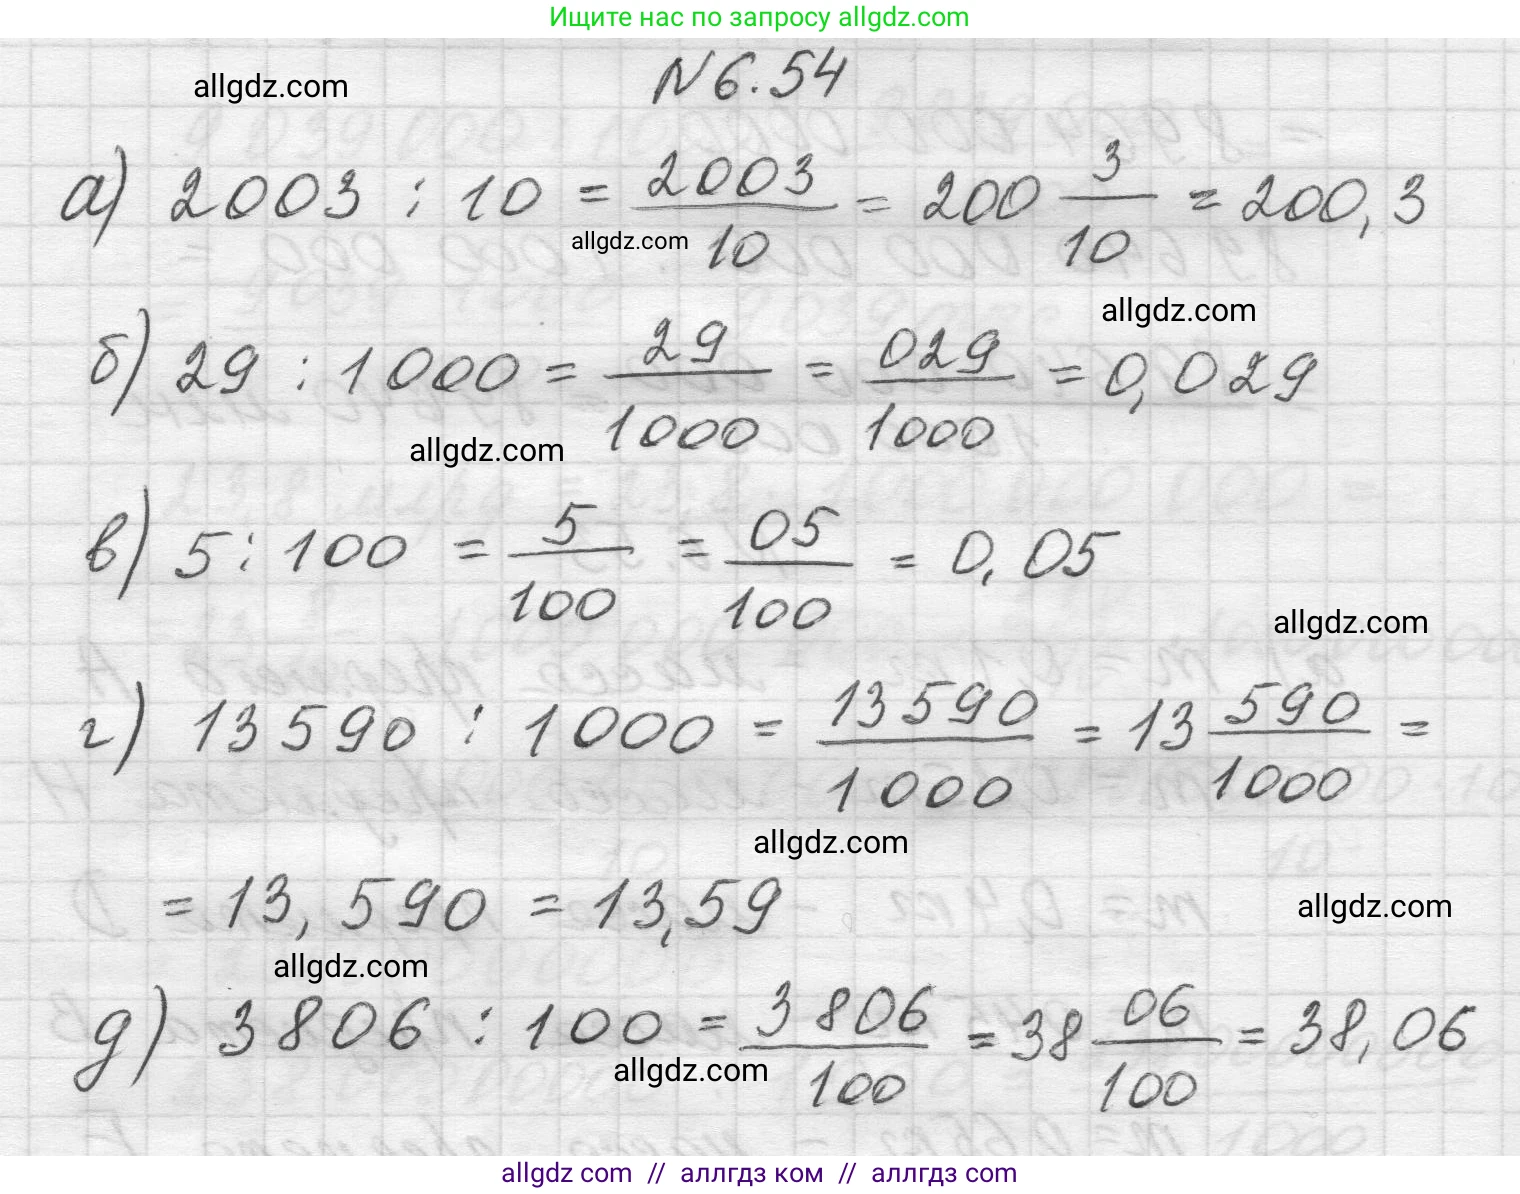 Ищите нас по запросу allgdz.com
allgdz.com
N 6.54
а) 2003 : 10 = 2003/10 = 200 3/10 = 200,3
allgdz.com
allgdz.com
б) 29 : 1000 = 29/1000 = 029/1000 = 0,029
allgdz.com
в) 5 : 100 = 5/100 = 05/100 = 0,05
allgdz.com
г) 13590 : 1000 = 13590/1000 = 13 590/1000 =
allgdz.com
= 13,590 = 13,59
allgdz.com
allgdz.com
д) 3806 : 100 = 3806/100 = 38 06/100 = 38,06
allgdz.com
allgdz.com // аллгдз ком // аллгдз.com